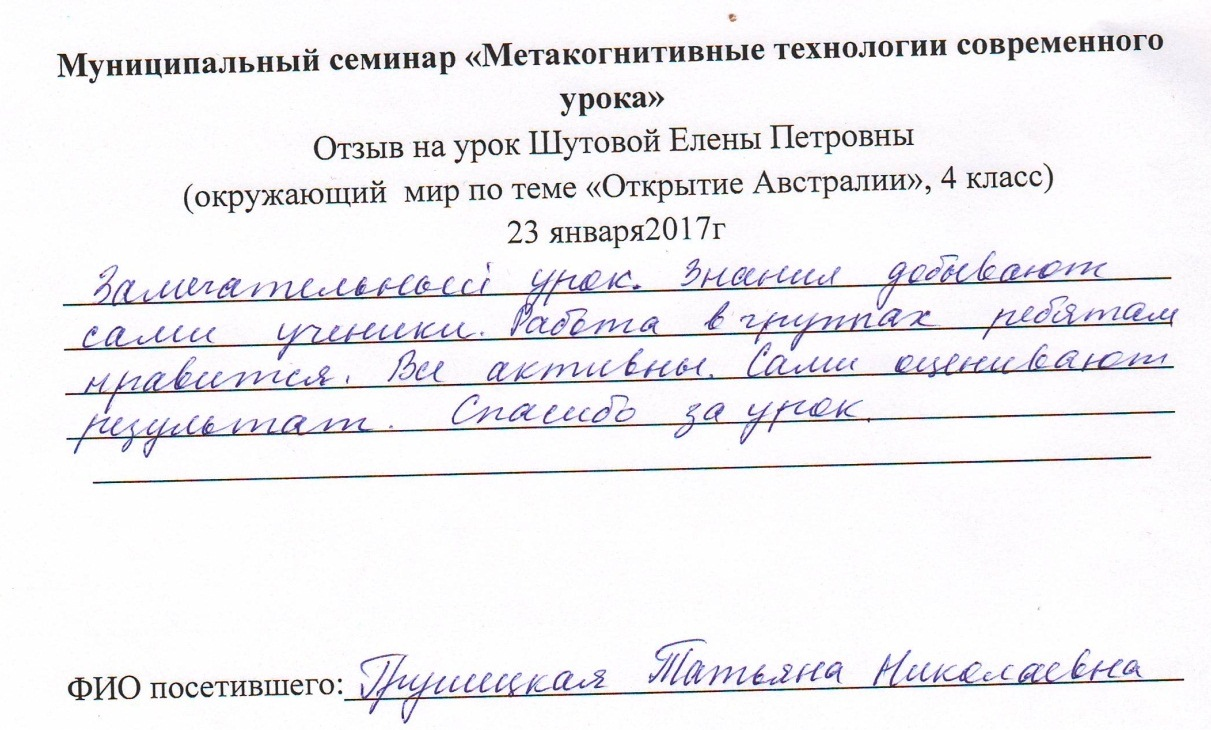 Муниципальный семинар «Метакогнитивные технологии современного
урока»
Отзыв на урок Шутовой Елены Петровны
(окружающий мир по теме «Открытие Австралии», 4 класс)
23 января2017г
Замечательный урок. Знания добывают
сами ученики. Работа в группах ребятам
нравится. Все активны. Сами оценивают
результат. Спасибо за урок.
ФИО посетившего: Татьяна Николаевна